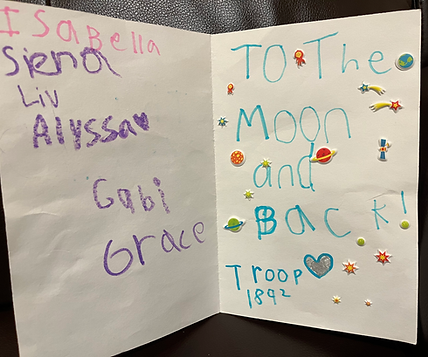 ISaBella
Siena
Liv
Alyssa
Gabi
Grace
TO The
Moon
and
BacK!
Troop
1892